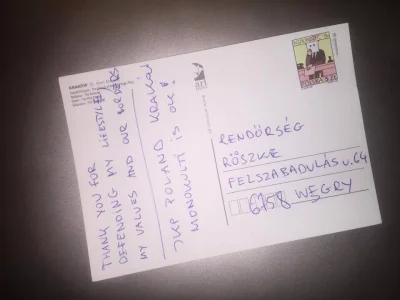 KRAKÓW
THANK YOU FOR
DEFENDING MY LIFESTYLE,
MY VALUES AND OUR BORDERS
JKP POLAND KRAKÓW
MONOKULTI IS OK!
art
POLSKA 5 ZŁ
RENDŐRSÉG
RÖSZKE
FELSZABADULÁS u. 64
6758 WĘGRY